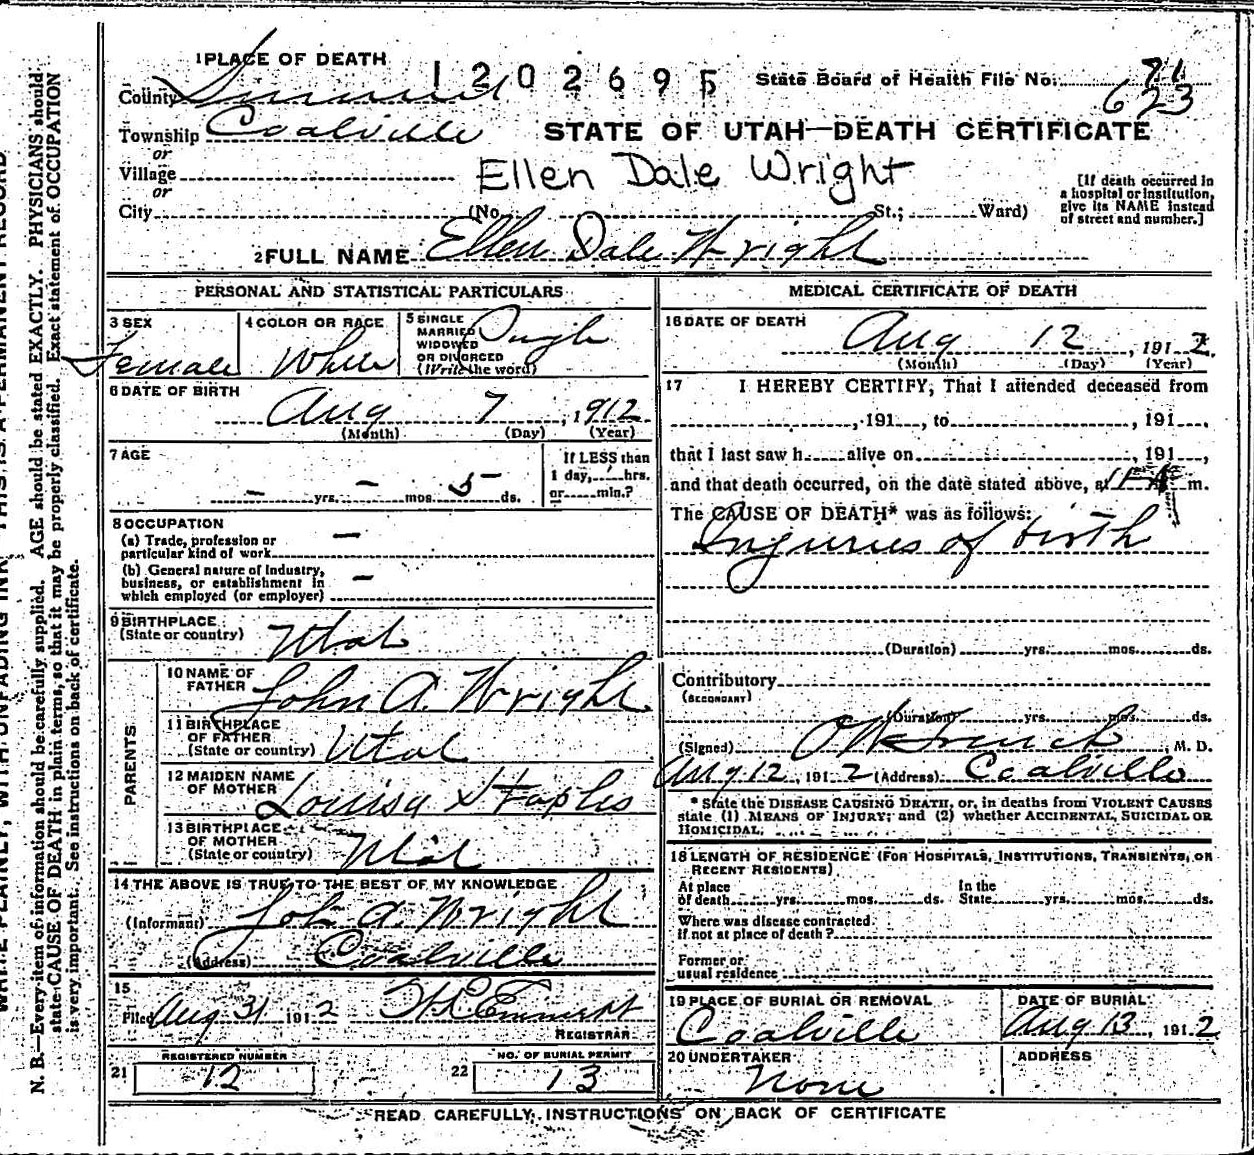 1 PLACE OF DEATH
1202695
State Board of Health File No. 71
623
County Summit
Township Coalville
STATE OF UTAH—DEATH CERTIFICATE
or
Village
Ellen Dale Wright
or
City (No. St.; Ward)
[If death occurred in
a hospital or institution,
give its NAME instead
of street and number.]
2 FULL NAME Ellen Dale Wright
PERSONAL AND STATISTICAL PARTICULARS
3 SEX
Female
4 COLOR OR RACE
White
5 SINGLE
MARRIED
WIDOWED
OR DIVORCED
(Write the word)
Single
6 DATE OF BIRTH
Aug 7, 1912
(Month) (Day) (Year)
7 AGE
- yrs. - mos. 5 ds.
If LESS than
1 day, hrs.
or min.?
8 OCCUPATION
(a) Trade, profession or
particular kind of work -
(b) General nature of industry,
business, or establishment in
which employed (or employer) -
9 BIRTHPLACE
(State or country) Utah
PARENTS
10 NAME OF
FATHER John A. Wright
11 BIRTHPLACE
OF FATHER
(State or country) Utah
12 MAIDEN NAME
OF MOTHER Louisa Staples
13 BIRTHPLACE
OF MOTHER
(State or country) Utah
14 THE ABOVE IS TRUE TO THE BEST OF MY KNOWLEDGE
(Informant) John A. Wright
(Address) Coalville
15
Filed Aug 31 1912
REGISTRAR
REGISTERED NUMBER
21 12
NO. OF BURIAL PERMIT
22 13
MEDICAL CERTIFICATE OF DEATH
16 DATE OF DEATH
Aug 12, 1912.
(Month) (Day) (Year)
17 I HEREBY CERTIFY, That I attended deceased from
, 191 , to , 191 ,
that I last saw h alive on , 191 ,
and that death occurred, on the date stated above, at m.
The CAUSE OF DEATH* was as follows:
Injuries of birth
(Duration) yrs. mos. ds.
Contributory
(SECONDARY)
(Duration) yrs. mos. ds.
(Signed) , M. D.
Aug 12, 1912 (Address) Coalville
* State the DISEASE CAUSING DEATH, or, in deaths from VIOLENT CAUSES
state (1) MEANS OF INJURY; and (2) whether ACCIDENTAL, SUICIDAL OR
HOMICIDAL.
18 LENGTH OF RESIDENCE (FOR HOSPITALS, INSTITUTIONS, TRANSIENTS, OR
RECENT RESIDENTS)
At place
of death yrs. mos. ds.
In the
State yrs. mos. ds.
Where was disease contracted
if not at place of death?
Former or
usual residence
19 PLACE OF BURIAL OR REMOVAL
Coalville
DATE OF BURIAL
Aug 13, 1912
20 UNDERTAKER
None
ADDRESS
READ CAREFULLY INSTRUCTIONS ON BACK OF CERTIFICATE
WRITE PLAINLY, WITH UNFADING INK THIS IS A PERMANENT RECORD
N. B.—Every item of information should be carefully supplied. AGE should be stated EXACTLY. PHYSICIANS should
state CAUSE OF DEATH in plain terms, so that it may be properly classified. Exact statement of OCCUPATION
is very important. See instructions on back of certificate.